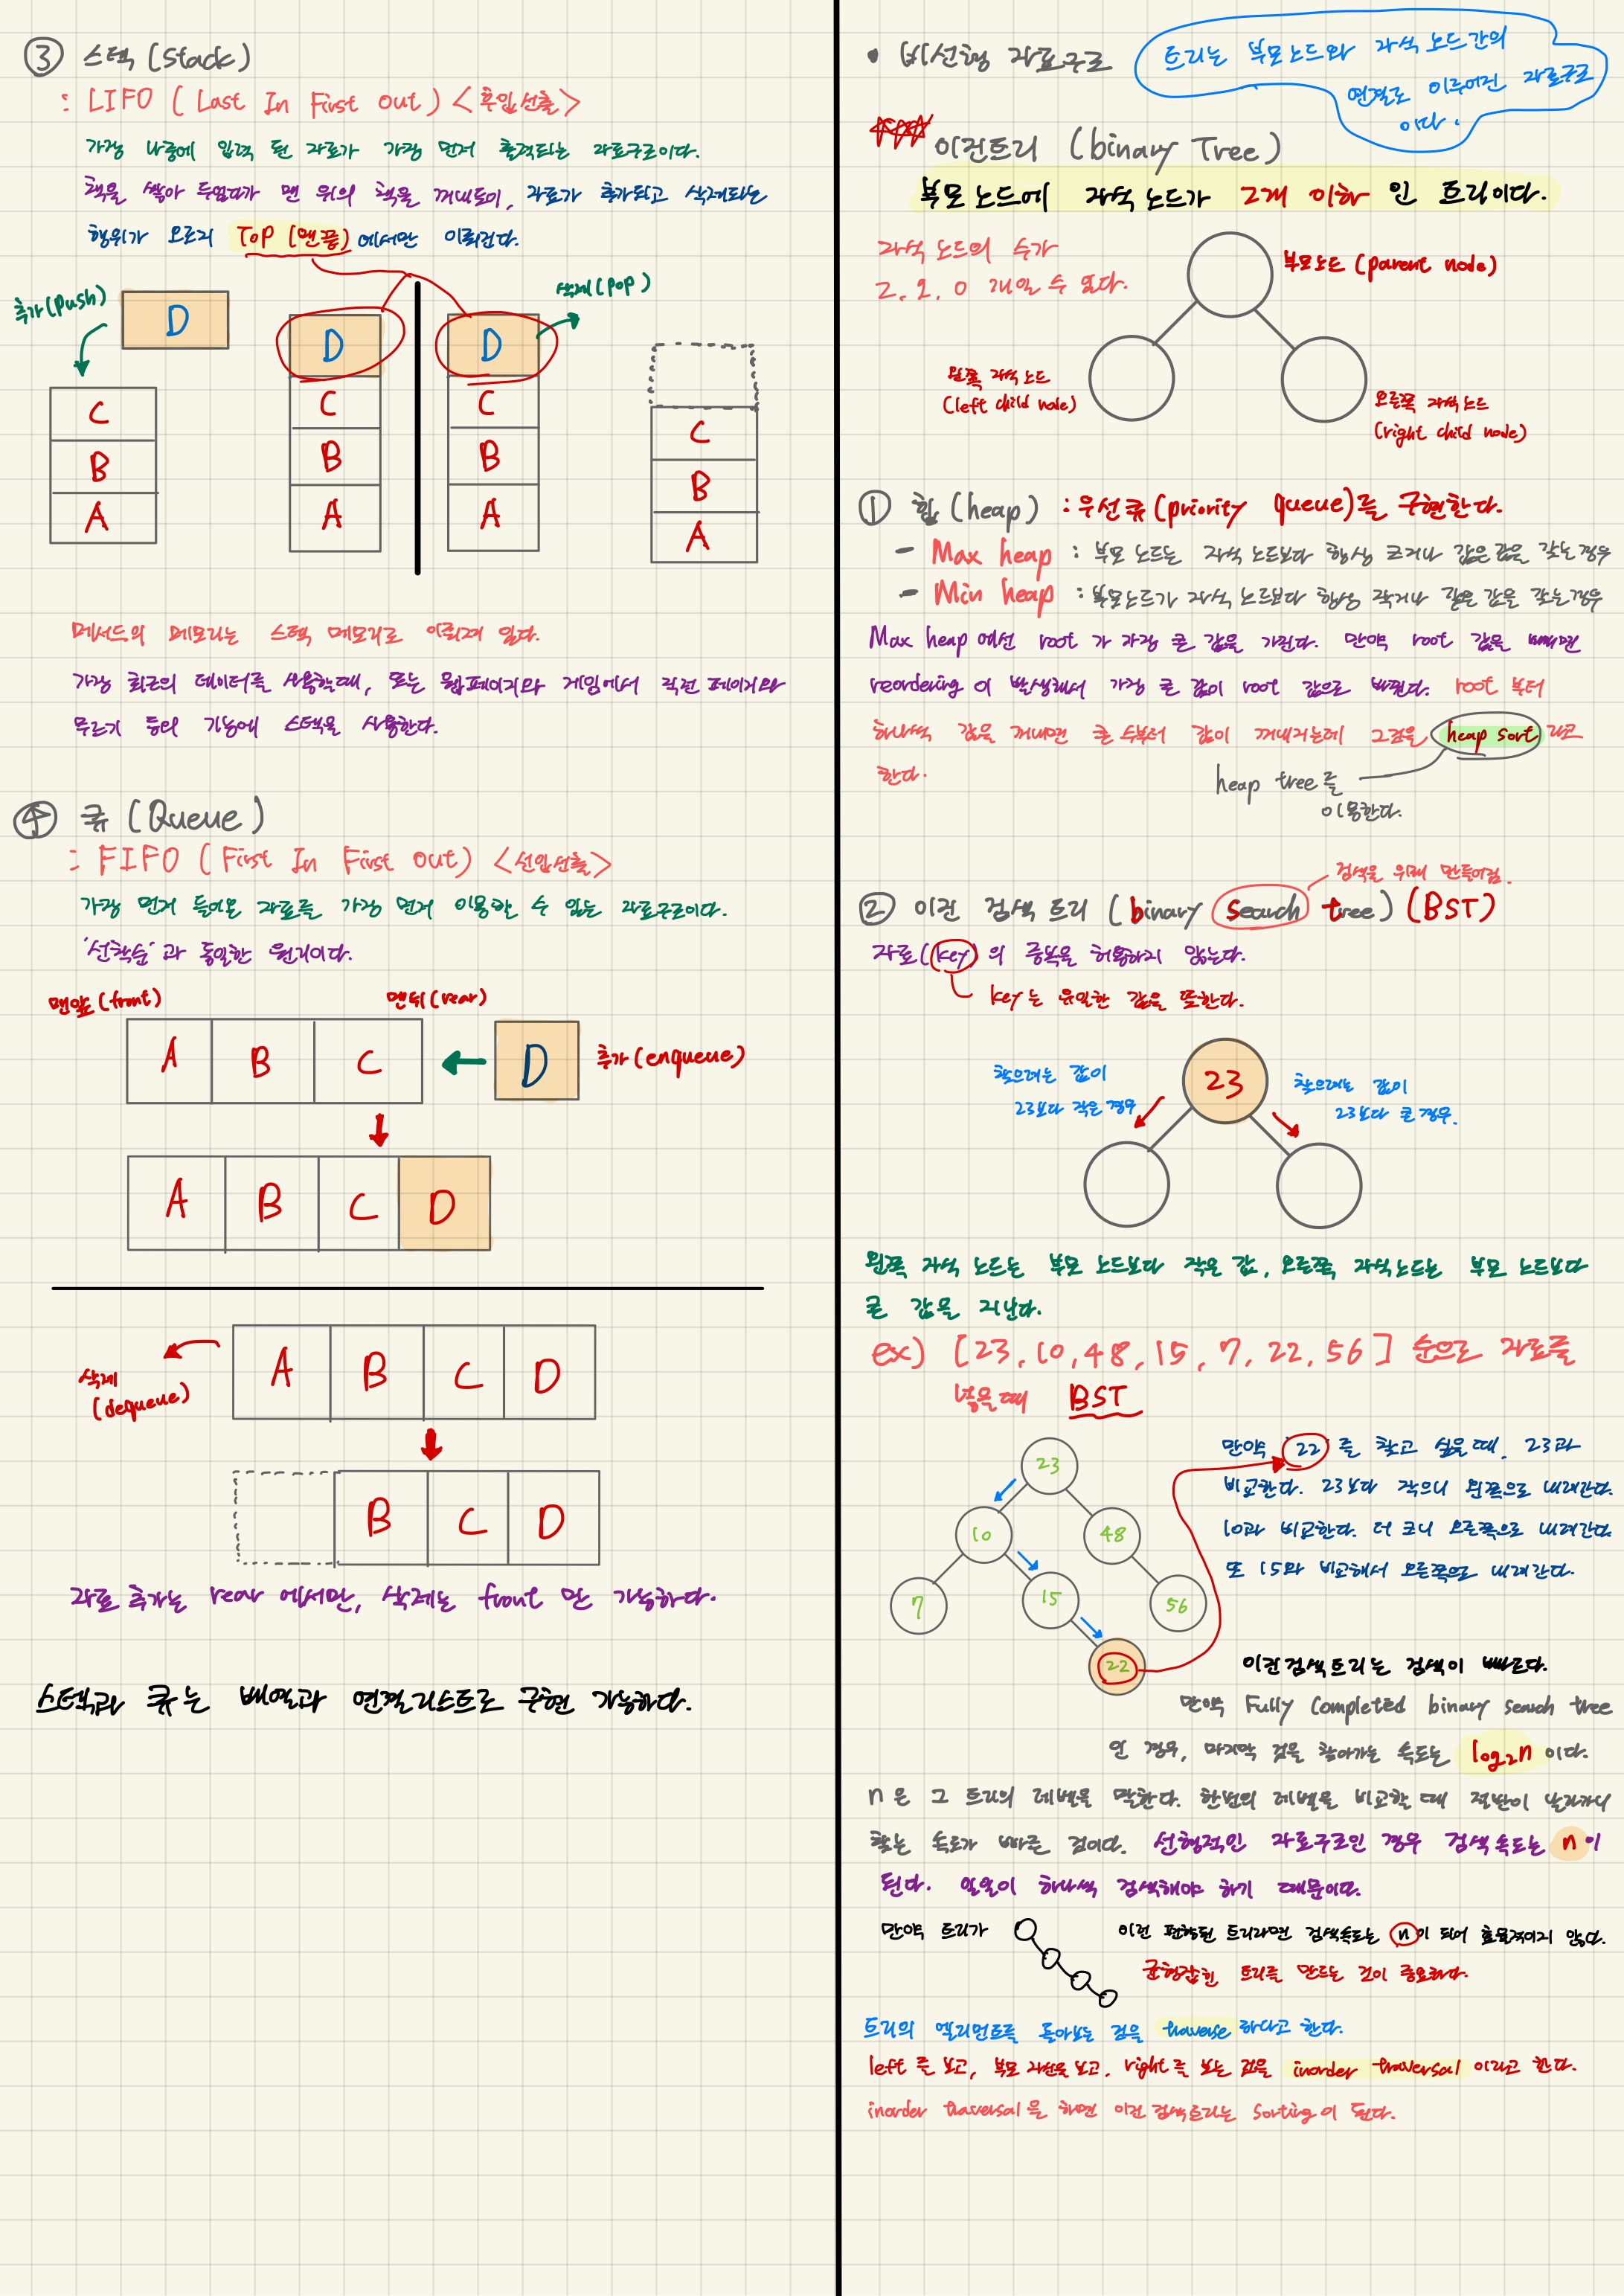 ③ 스택 (Stack)
: LIFO ( Last In First Out ) <후입선출>
가장 나중에 입력 된 자료가 가장 먼저 출력되는 자료구조이다.
책을 쌓아 두었다가 맨 위의 책을 꺼내듯이, 자료가 추가되고 삭제되는
행위가 오로지 TOP (맨끝) 에서만 이뤄진다.
추가(push)
D
C
B
A
D
C
B
A
삭제(pop)
D
C
B
A
C
B
A
메서드의 메모리는 스택 메모리로 이뤄져 있다.
가장 최근의 데이터를 사용할때, 또는 웹페이지와 게임에서 직전 페이지와
무르기 등의 기능에 스택을 사용한다.
④ 큐 (Queue)
: FIFO ( First In First Out) <선입선출>
가장 먼저 들어온 자료를 가장 먼저 이용할 수 있는 자료구조이다.
'선착순'과 동일한 원리이다.
맨앞(front)
맨뒤(rear)
A B C
D
추가(enqueue)
A B C D
삭제
(dequeue)
A B C D
B C D
자료 추가는 rear 에서만, 삭제는 front 만 가능하다.
스택과 큐는 배열과 연결리스트로 구현 가능하다.
• 비선형 자료구조
트리는 부모노드와 자식 노드간의
연결로 이루어진 자료구조
이다.
이진트리 (binary Tree)
부모 노드에 자식 노드가 2개 이하 인 트리이다.
자식 노드의 수가
2, 1, 0 개일 수 있다.
부모노드 (parent node)
왼쪽 자식 노드
(left child node)
오른쪽 자식노드
(right child node)
① 힙 (heap) : 우선큐(priority queue)를 구현한다.
- Max heap : 부모 노드는 자식 노드보다 항상 크거나 같은값을 갖는경우
- Min heap : 부모노드가 자식 노드보다 항상 작거나 같은 값을 갖는경우
Max heap 에선 root 가 가장 큰 값을 가진다. 만약 root 값을 빼면
reordering 이 발생해서 가장 큰 값이 root 값으로 바뀐다. root 부터
하나씩 값을 꺼내면 큰 수부터 값이 꺼내지는데 그것을 heap sort 라고
한다.
heap tree 를
이용한다.
검색을 위해 만들어짐.
② 이진 검색 트리 (binary search tree) (BST)
자료(key) 의 중복을 허용하지 않는다.
key는 유일한 값을 뜻한다.
찾으려는 값이
23보다 작은 경우
23
찾으려는 값이
23보다 큰 경우.
왼쪽 자식 노드는 부모 노드보다 작은 값, 오른쪽 자식노드는 부모 노드보다
큰 값을 지닌다.
ex) [23, 10, 48, 15, 7, 22, 56 ] 순으로 자료를
넣을때 BST
23
10 48
7 15 56
22
만약 22 를 찾고 싶을때, 23과
비교한다. 23보다 작으니 왼쪽으로 내려간다.
10과 비교한다. 더 크니 오른쪽으로 내려간다
또 15와 비교해서 오른쪽으로 내려간다.
이진검색트리는 검색이 빠르다.
만약 Fully Completed binary search tree
인 경우, 마지막 것을 찾아가는 속도는 log₂n 이다.
n은 그 트리의 레벨을 말한다. 한번의 레벨을 비교할 때 절반이 날라가니
찾는 속도가 빠른 것이다. 선형적인 자료구조인 경우 검색속도는 n이
된다. 일일이 하나씩 검색해야 하기 때문이다.
만약 트리가
이런 편향된 트리라면 검색속도는 n이 되어 효율적이지 않다.
균형잡힌 트리를 만드는 것이 중요하다.
트리의 엘리먼트를 돌아보는 것을 traverse 한다고 한다.
left 를 보고, 부모 자신을 보고, right를 보는 것을 inorder traversal 이라고 한다.
inorder traversal 을 하면 이진검색트리는 Sorting이 된다.